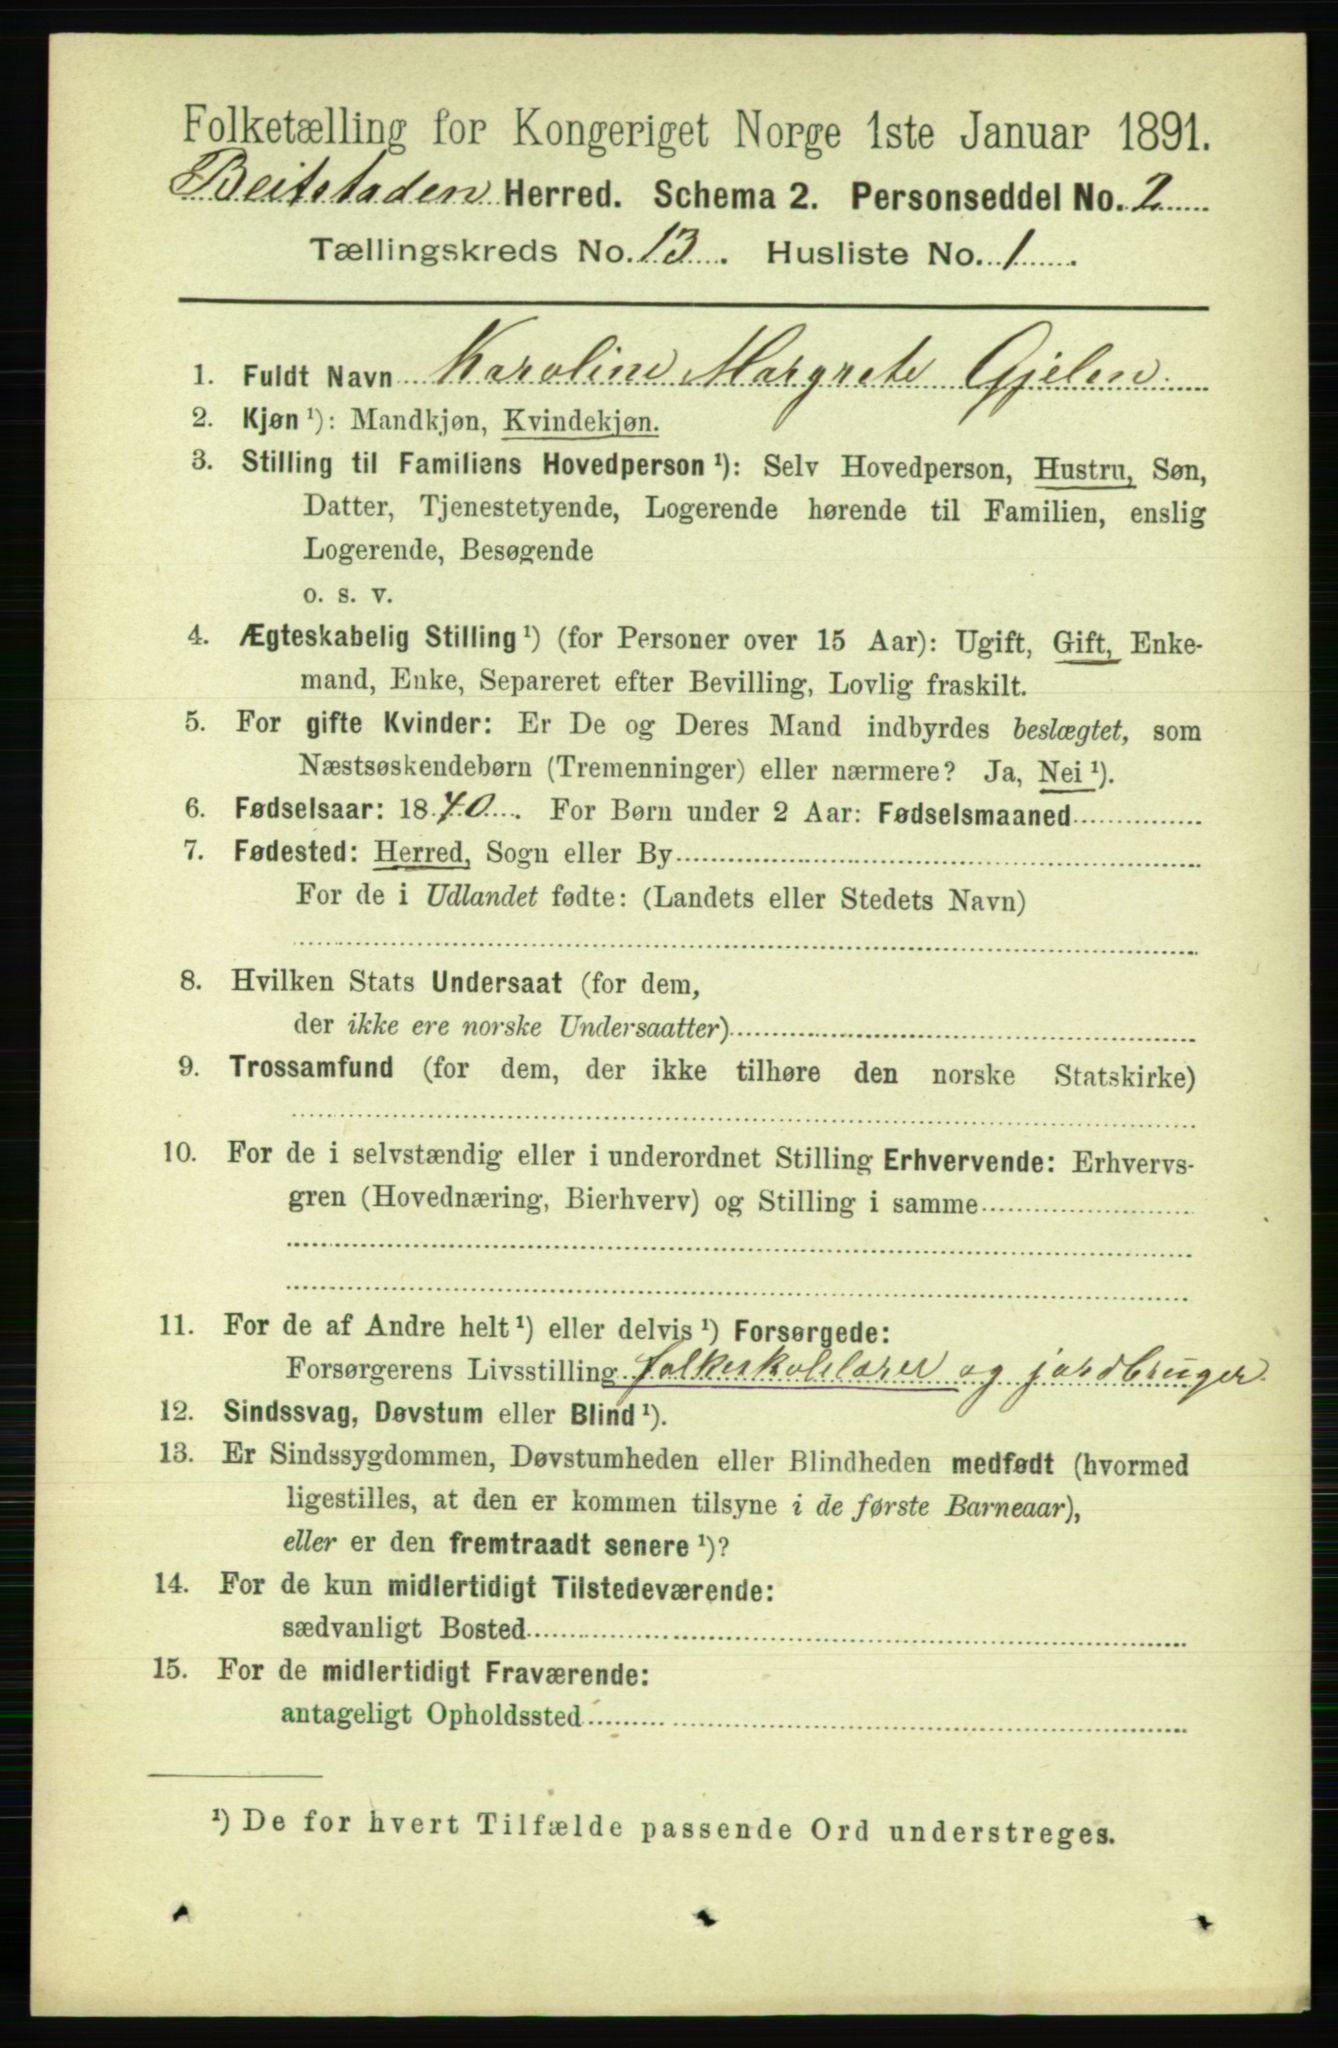 Folketælling for Kongeriget Norge 1ste Januar 1891.
Beitstaden Herred. Schema 2. Personseddel No. 2
Tællingskreds No. 13. Husliste No. 1.
1. Fuldt Navn Karoline Margrete Gjelen.
2. Kjøn ¹): Mandkjøn, Kvindekjøn.
3. Stilling til Familiens Hovedperson ¹): Selv Hovedperson, Hustru, Søn,
Datter, Tjenestetyende, Logerende hørende til Familien, enslig
Logerende, Besøgende
o. s. v.
4. Ægteskabelig Stilling ¹) (for Personer over 15 Aar): Ugift, Gift, Enke-
mand, Enke, Separeret efter Bevilling, Lovlig fraskilt.
5. For gifte Kvinder: Er De og Deres Mand indbyrdes beslægtet, som
Næstsøskendebørn (Tremenninger) eller nærmere? Ja, Nei ¹).
6. Fødselsaar: 1870. For Børn under 2 Aar: Fødselsmaaned
7. Fødested: Herred, Sogn eller By
For de i Udlandet fødte: (Landets eller Stedets Navn)
8. Hvilken Stats Undersaat (for dem,
der ikke ere norske Undersaatter)
9. Trossamfund (for dem, der ikke tilhøre den norske Statskirke)
10. For de i selvstændig eller i underordnet Stilling Erhvervende: Erhvervs-
gren (Hovednæring, Bierhverv) og Stilling i samme
11. For de af Andre helt ¹) eller delvis ¹) Forsørgede:
Forsørgerens Livsstilling folkeskolelærer og jordbruger
12. Sindssvag, Døvstum eller Blind ¹).
13. Er Sindssygdommen, Døvstumheden eller Blindheden medfødt (hvormed
ligestilles, at den er kommen tilsyne i de første Barneaar),
eller er den fremtraadt senere ¹)?
14. For de kun midlertidigt Tilstedeværende:
sædvanligt Bosted
15. For de midlertidigt Fraværende:
antageligt Opholdssted
¹) De for hvert Tilfælde passende Ord understreges.